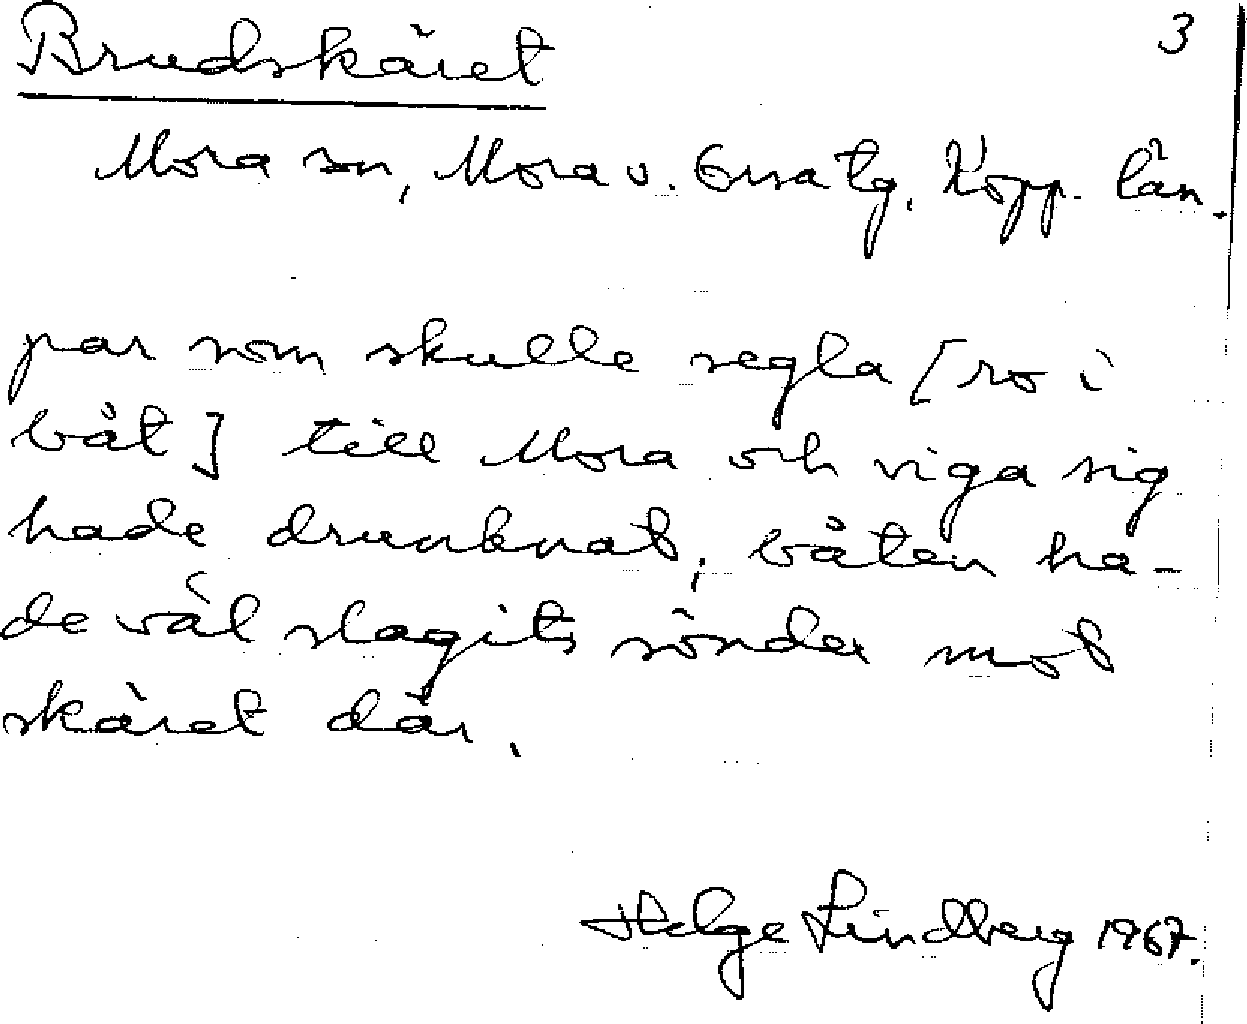 Brudskäret 3
Mora sn, Mora v. Orsa tg. Kopp. län.
par som skulle segla [ro i
båt] till Mora och viga sig
hade drunknat, båten ha-
de väl slagits sönder mot
skäret där.
Helge Lindberg 1967.